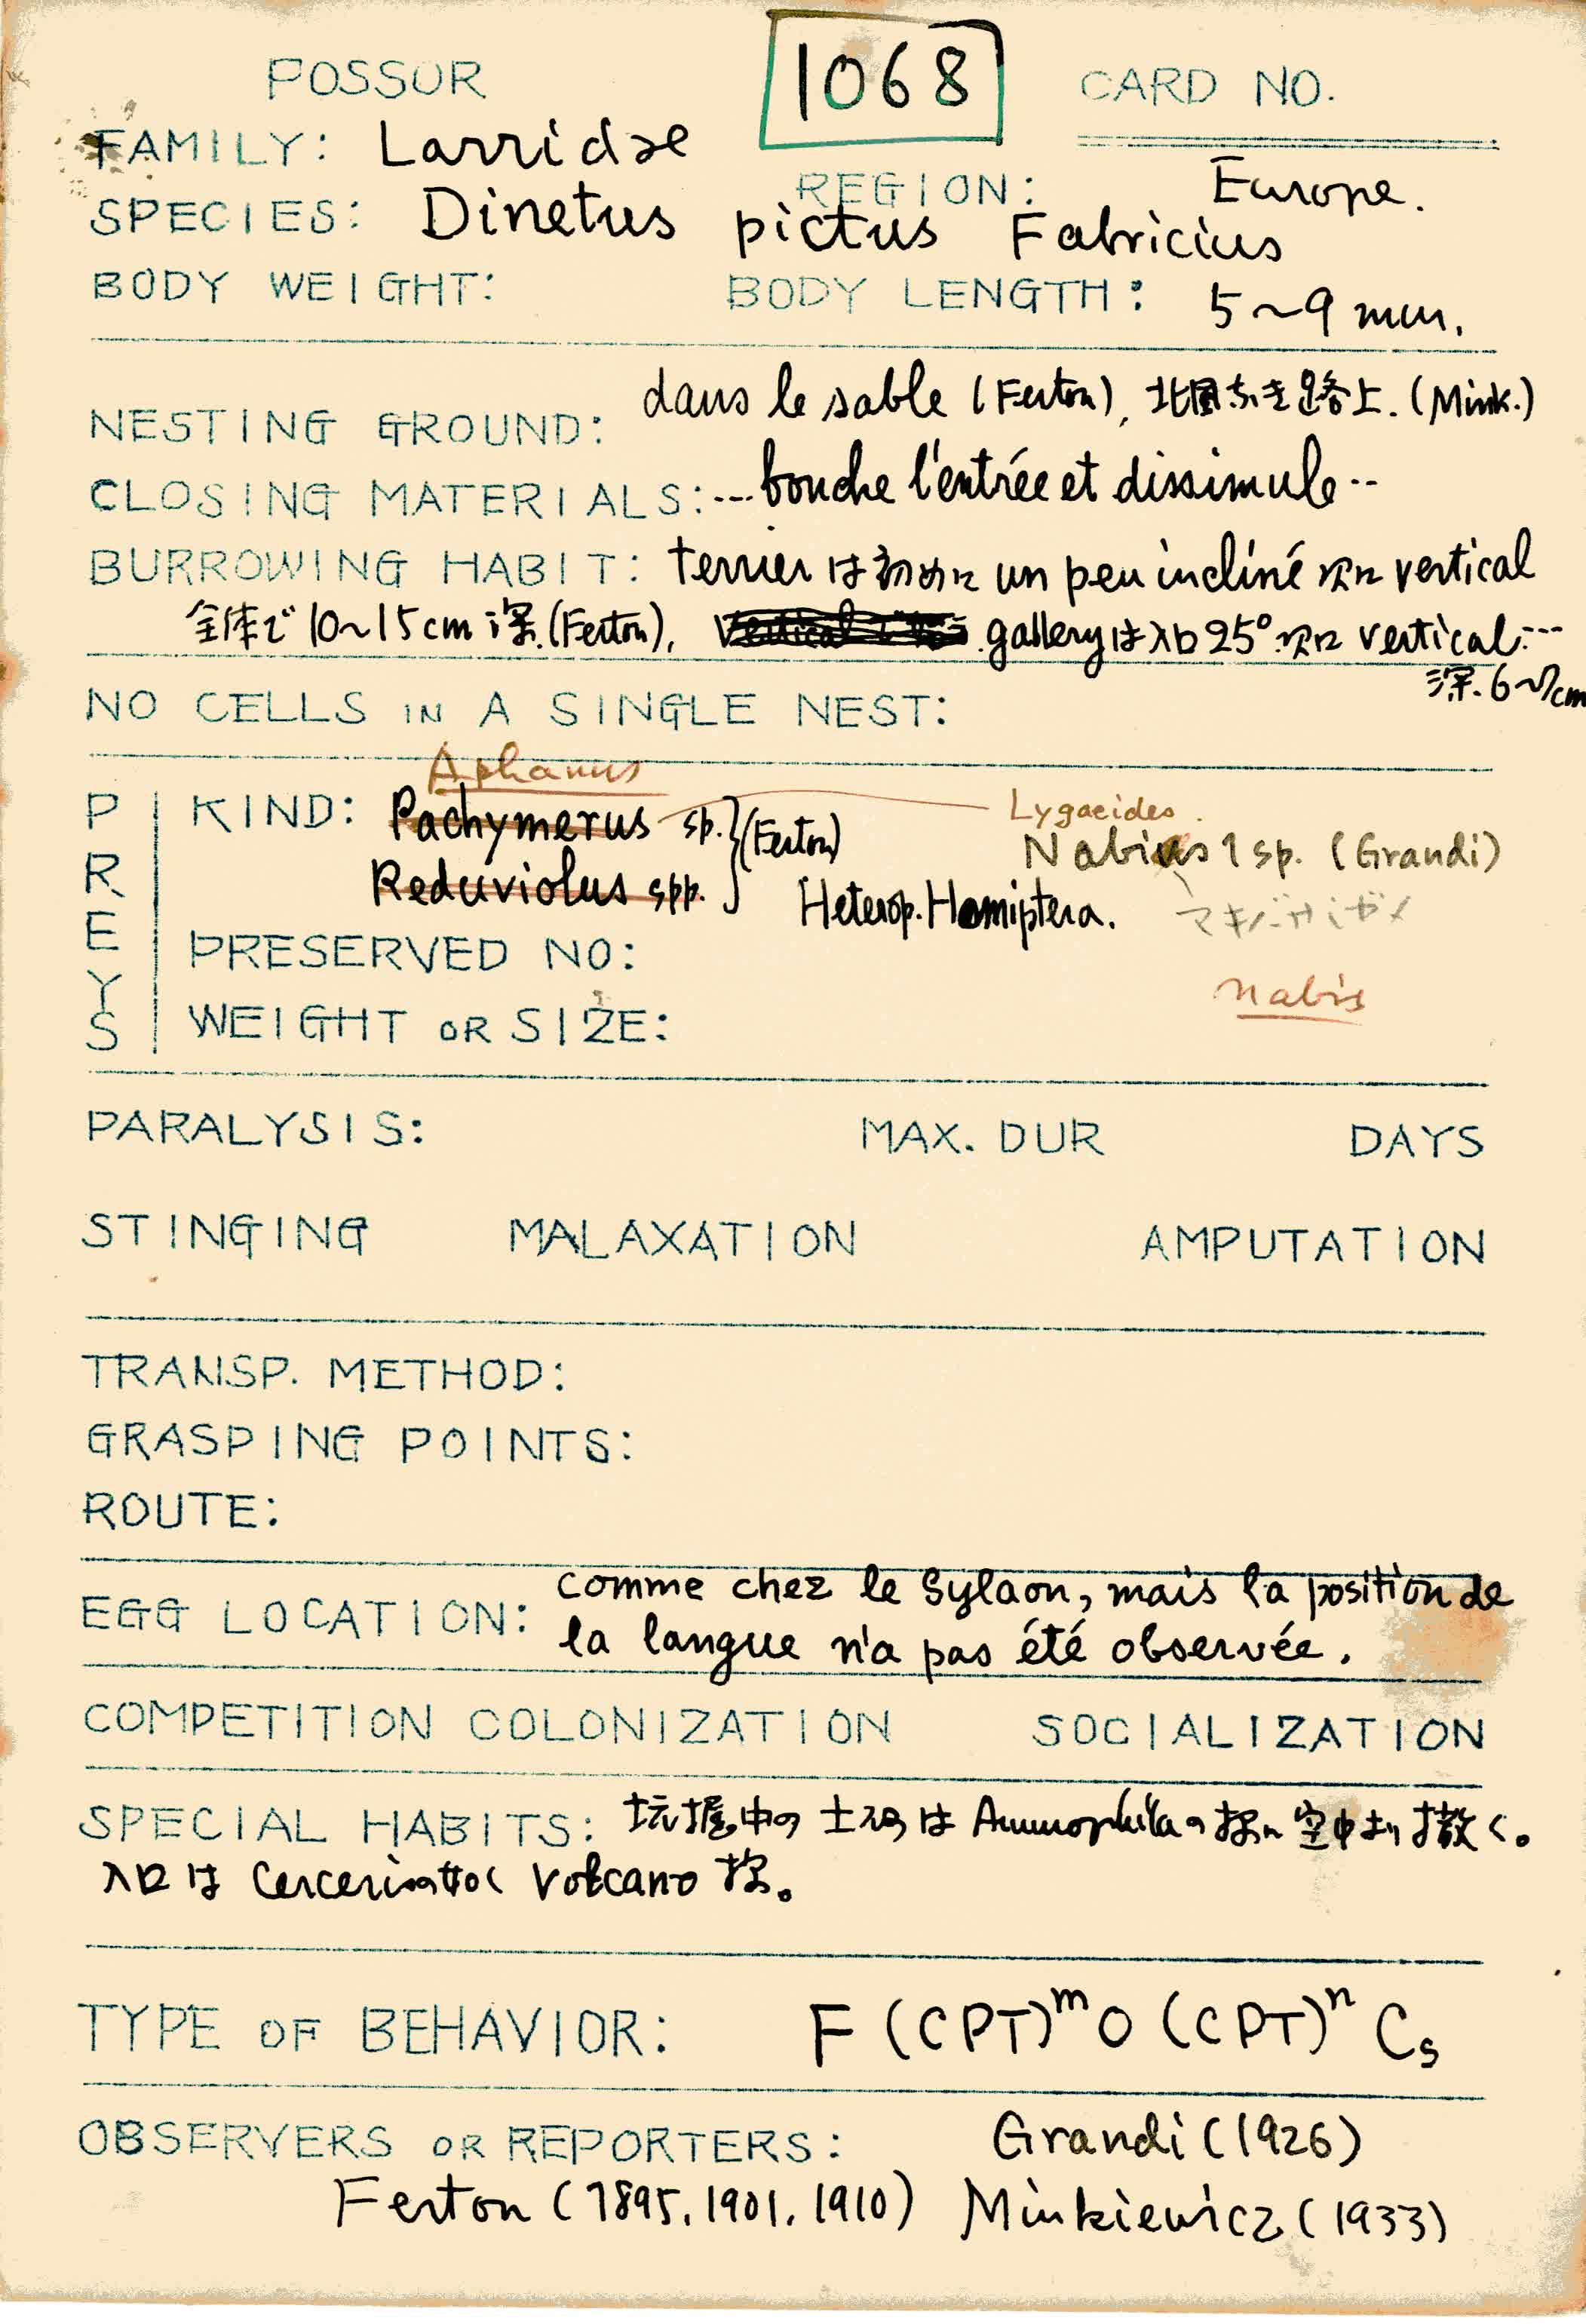 POSSUR 1068 CARD NO.
FAMILY: Larridae
REGION: Europe.
SPECIES: Dinetus pictus Fabricius
BODY WEIGHT: BODY LENGTH: 5~9 mm.
NESTING GROUND: dans le sable (Ferton), 路上. (Mink.)
CLOSING MATERIALS: ... bouche l'entrée et dissimule..
BURROWING HABIT: terrier は初めに un peu incliné 次に vertical
全体で 10~15cm 深. (Ferton), gallery は入口 25° 次に vertical...
深. 6~7cm
NO CELLS IN A SINGLE NEST:
Aphanus
PREYS
KIND: Pachymerus sp. } (Ferton) Lygaeides.
Reduviolus spp. Nabis 1 sp. (Grandi)
Heterop. Hemiptera. マキバサシガメ
PRESERVED NO:
Nabis
WEIGHT OR SIZE:
PARALYSIS: MAX. DUR DAYS
STINGING MALAXATION AMPUTATION
TRANSP. METHOD:
GRASPING POINTS:
ROUTE:
EGG LOCATION: comme chez le Sylaon, mais la position de
la langue n'a pas été observée.
COMPETITION COLONIZATION SOCIALIZATION
SPECIAL HABITS: 坑掘中の土砂は Ammophila の様に空中より撒く。
入口は volcano 状。
TYPE OF BEHAVIOR: F (CPT)ᵐ O (CPT)ⁿ Cs
OBSERVERS OR REPORTERS: Grandi (1926)
Ferton (1895, 1901, 1910) Minkiewicz (1933)